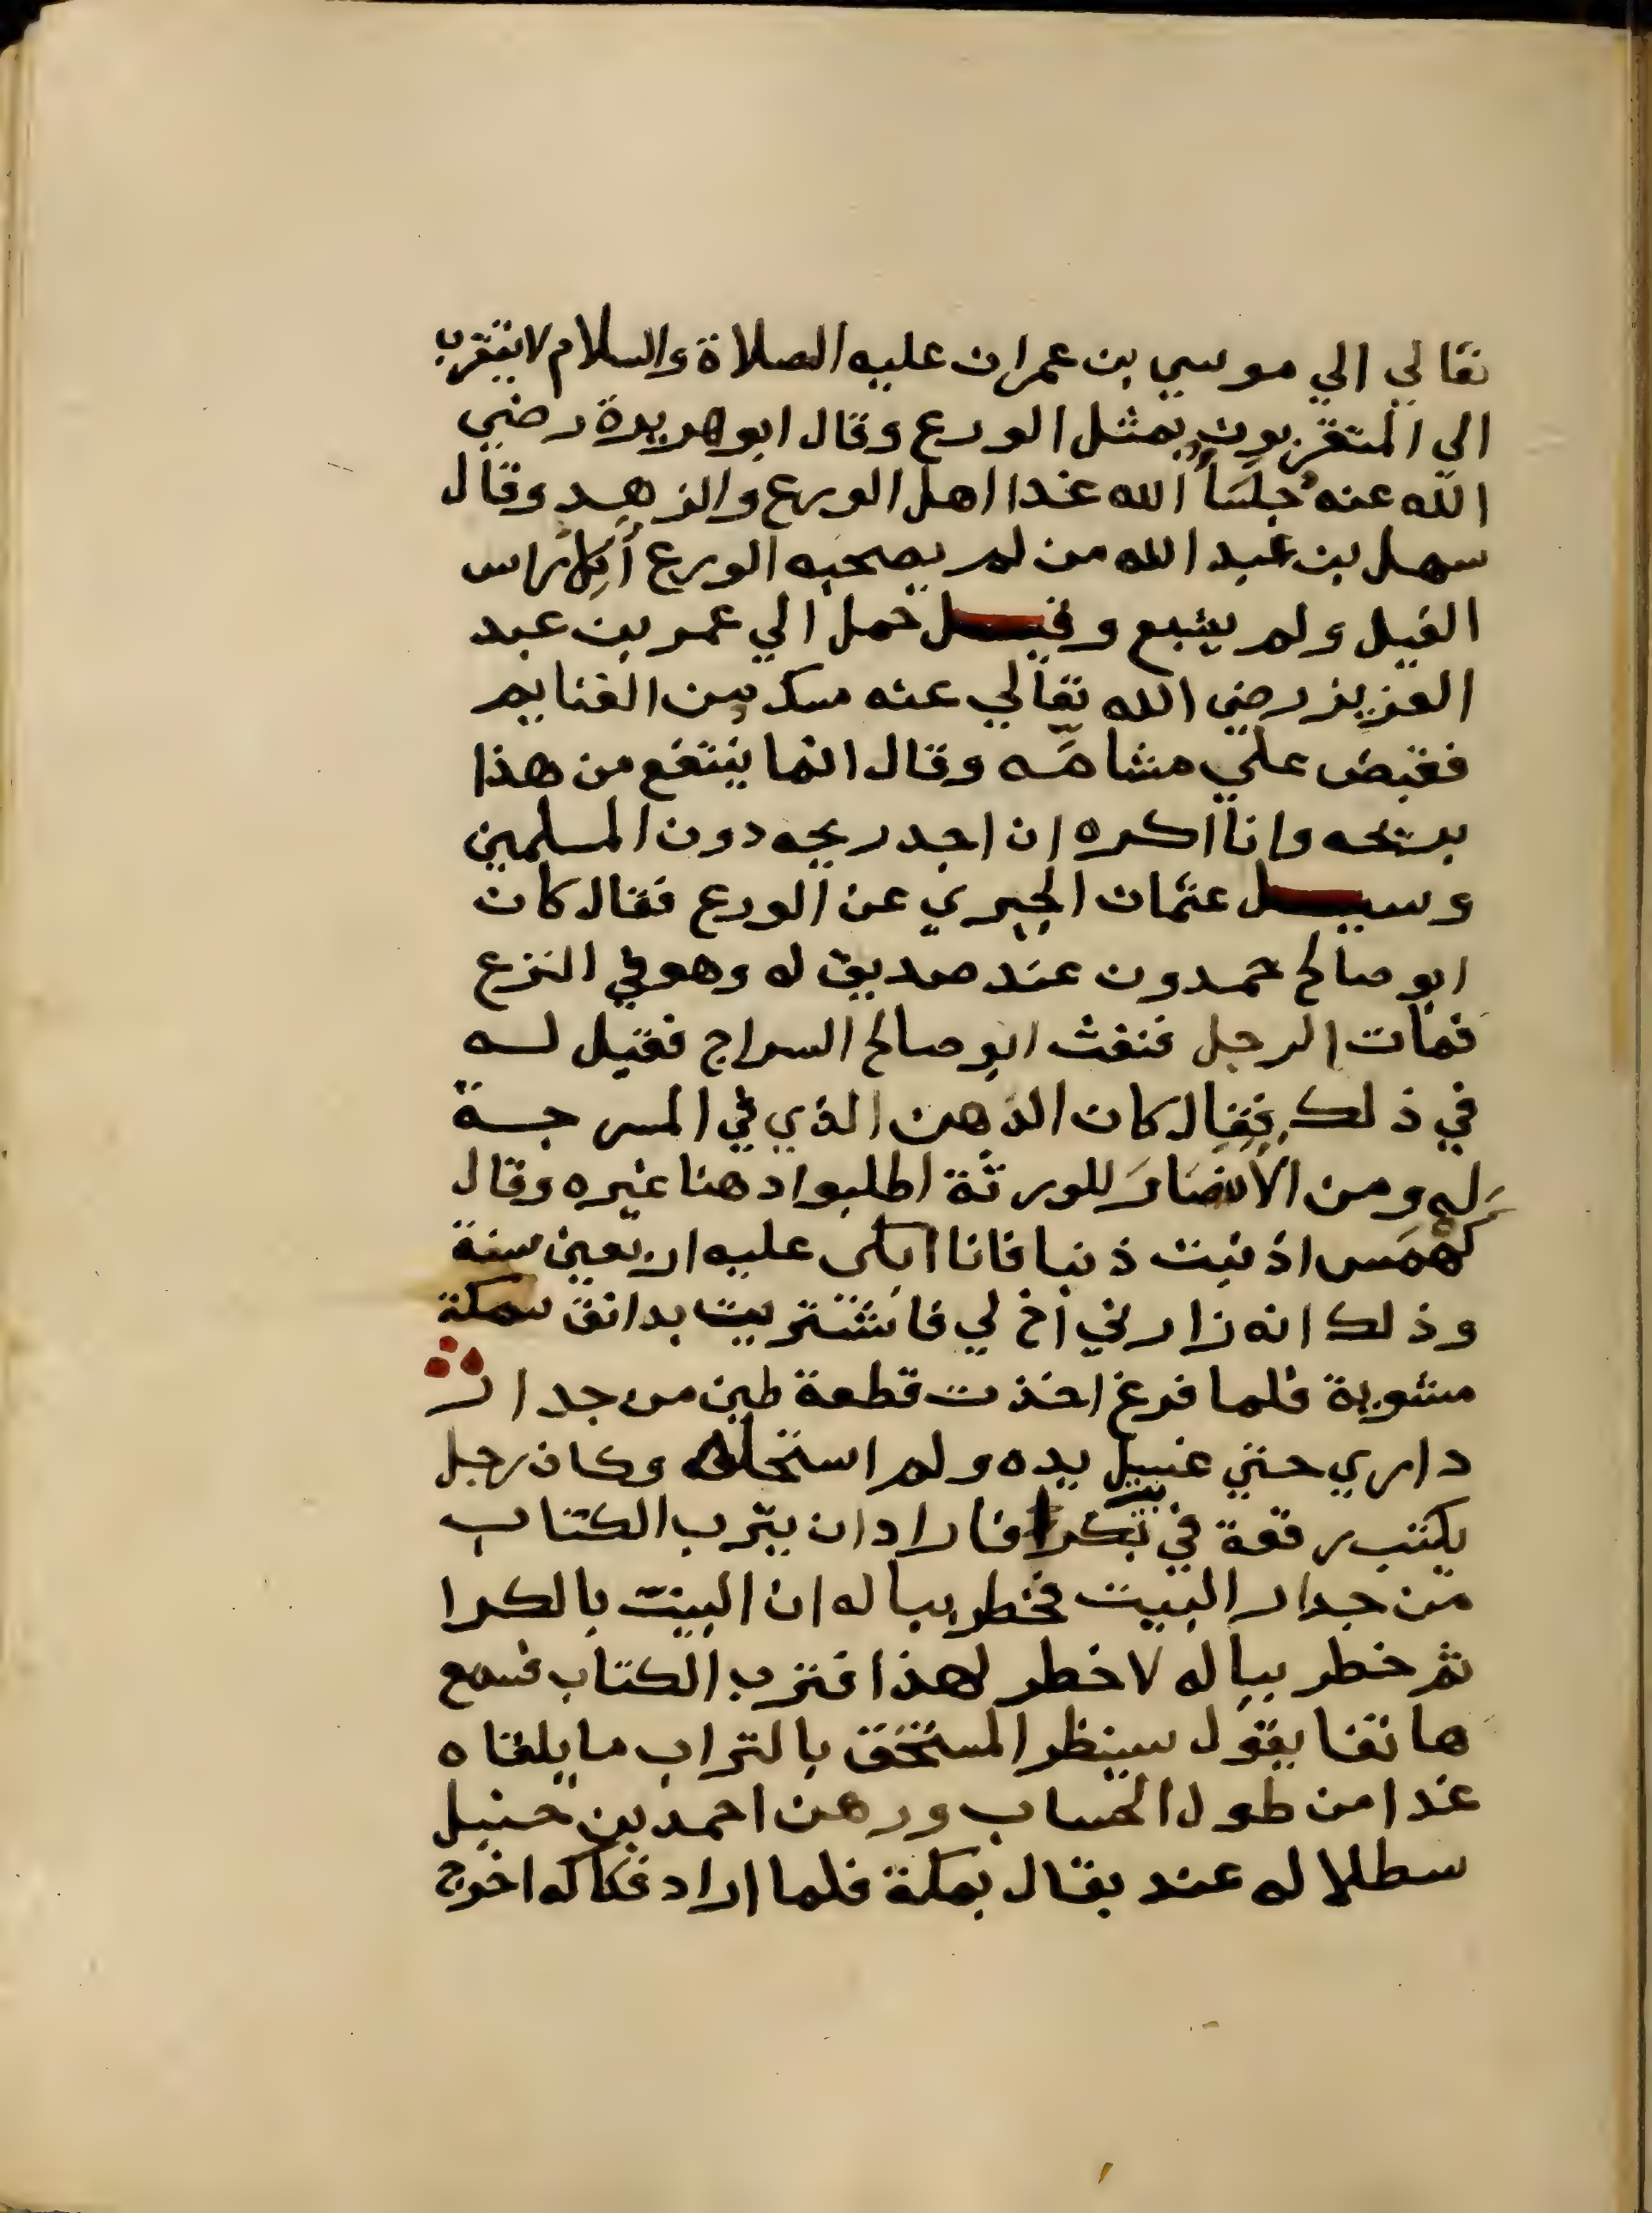 تعالي الي موسي بن عمران عليه الصلاة والسلام لا يتقرب
الي المتقربون بمثل الورع وقال ابو هريرة رضي
الله عنه جلسَاءُ الله غدا اهل الورع والزهد وقال
سهل بن عبد الله من لم يصحبه الورع أكل راس
الفيل ولم يشبع وقيل حمل الي عمر بن عبد
العزيز رضي الله تعالي عنه مسك من الغنايم
فقبض علي مشامّه وقال انما ينتفع من هذا
بريحه وانا اكره ان اجد ريحه دون المسلمين
وسيل عثمان الحيري عن الورع فقال كان
ابو صالح حمدون عند صديق له وهو في النزع
فمات الرجل فنفث ابو صالح السراج فقيل له
في ذلك فقال كان الدهن الذي في المسرجة
له ومن الأن صَارَ للورثة اطلبوا دهنا غيره وقال
كهمَس اذنبت ذنبا فانا ابكي عليه اربعين سنة
وذلك انه زارني أخ لي فاشتريت بدانق سمكة
مشوية فلما فرغ اخذت قطعة طين من جدار
داري حتي غسل يده ولم استحله وكان رجل
يكتب رقعة في بيت بكرا فاراد ان يترب الكتاب
من جدار البيت فخطر بباله ان البيت بالكرا
ثم خطر بباله لا خطر لهذا فترب الكتاب فسمع
هاتفا يقول سينظر المستخف بالتراب ما يلقاه
غدا من طول الحساب ورهن احمد بن حنبل
سطلا له عند بقال بمكة فلما اراد فكاكه اخرج